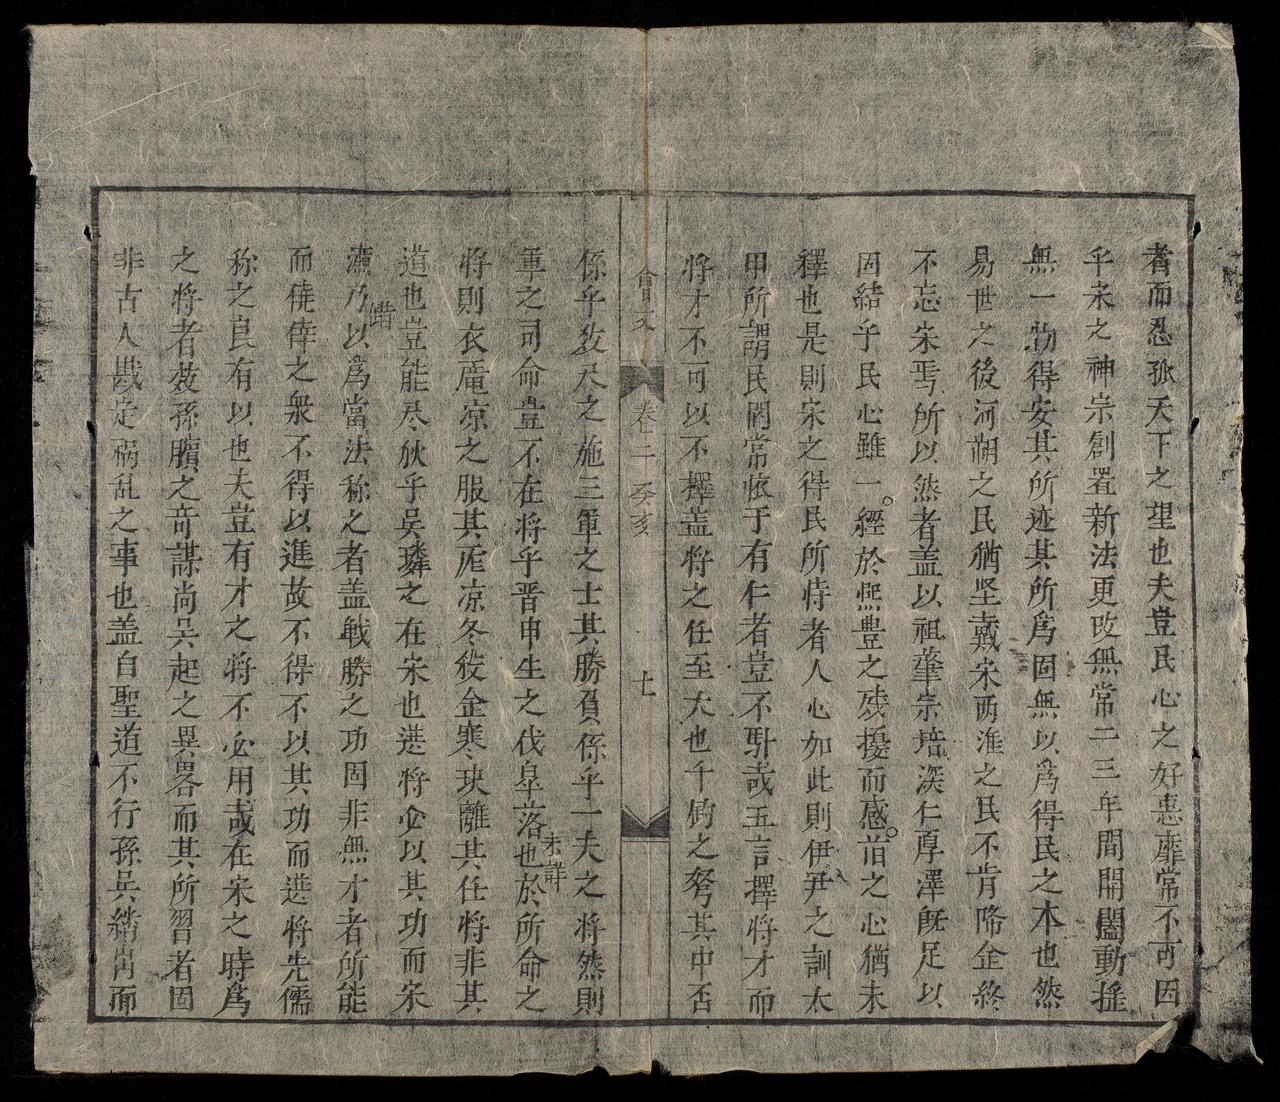 者而忍孤天下之望也夫豈民心之好惡靡常不可因
乎未之神宗創置新法更改無常二三年間開闔動搖
無一物得安其所迹其所為固無以為得民之本也然
易世之後河朔之民猶坚戴宋两淮之民不肯降金終
不忘宋焉所以然者盖以祖肇宗培深仁厚澤旣足以
固結乎民心雖一經於熙豊之残擾而感前之心猶未
釋也是則宋之得民所恃者人心如此則伊尹之訓太
甲所謂民罔常懐于有仁者豈不験哉五言擇将才而
将才不可以不擇盖将之任至大也千鈞之弩其中否
會文
卷二 癸亥
七
係乎数尺之施三軍之士其勝負係乎一夫之将然則
軍之司命豈不在将乎晋申生之伐皐落也於所命之
未詳
将則衣厖凉之服其厖凉冬殺金寒玦離其任将非其
道也豈能尽狄乎吳璘之在宋也選将必以其功而宋
濂乃以為當法称之者盖戦勝之功固非無才者所能
错
而僥倖之衆不得以進故不得不以其功而選将先儒
称之良有以也夫豈有才之将不必用哉在宋之時為
之将者茲孫臏之竒謀尚吳起之異畧而其所習者固
非古人戡定禍乱之事也盖自聖道不行孫吳緒胷而